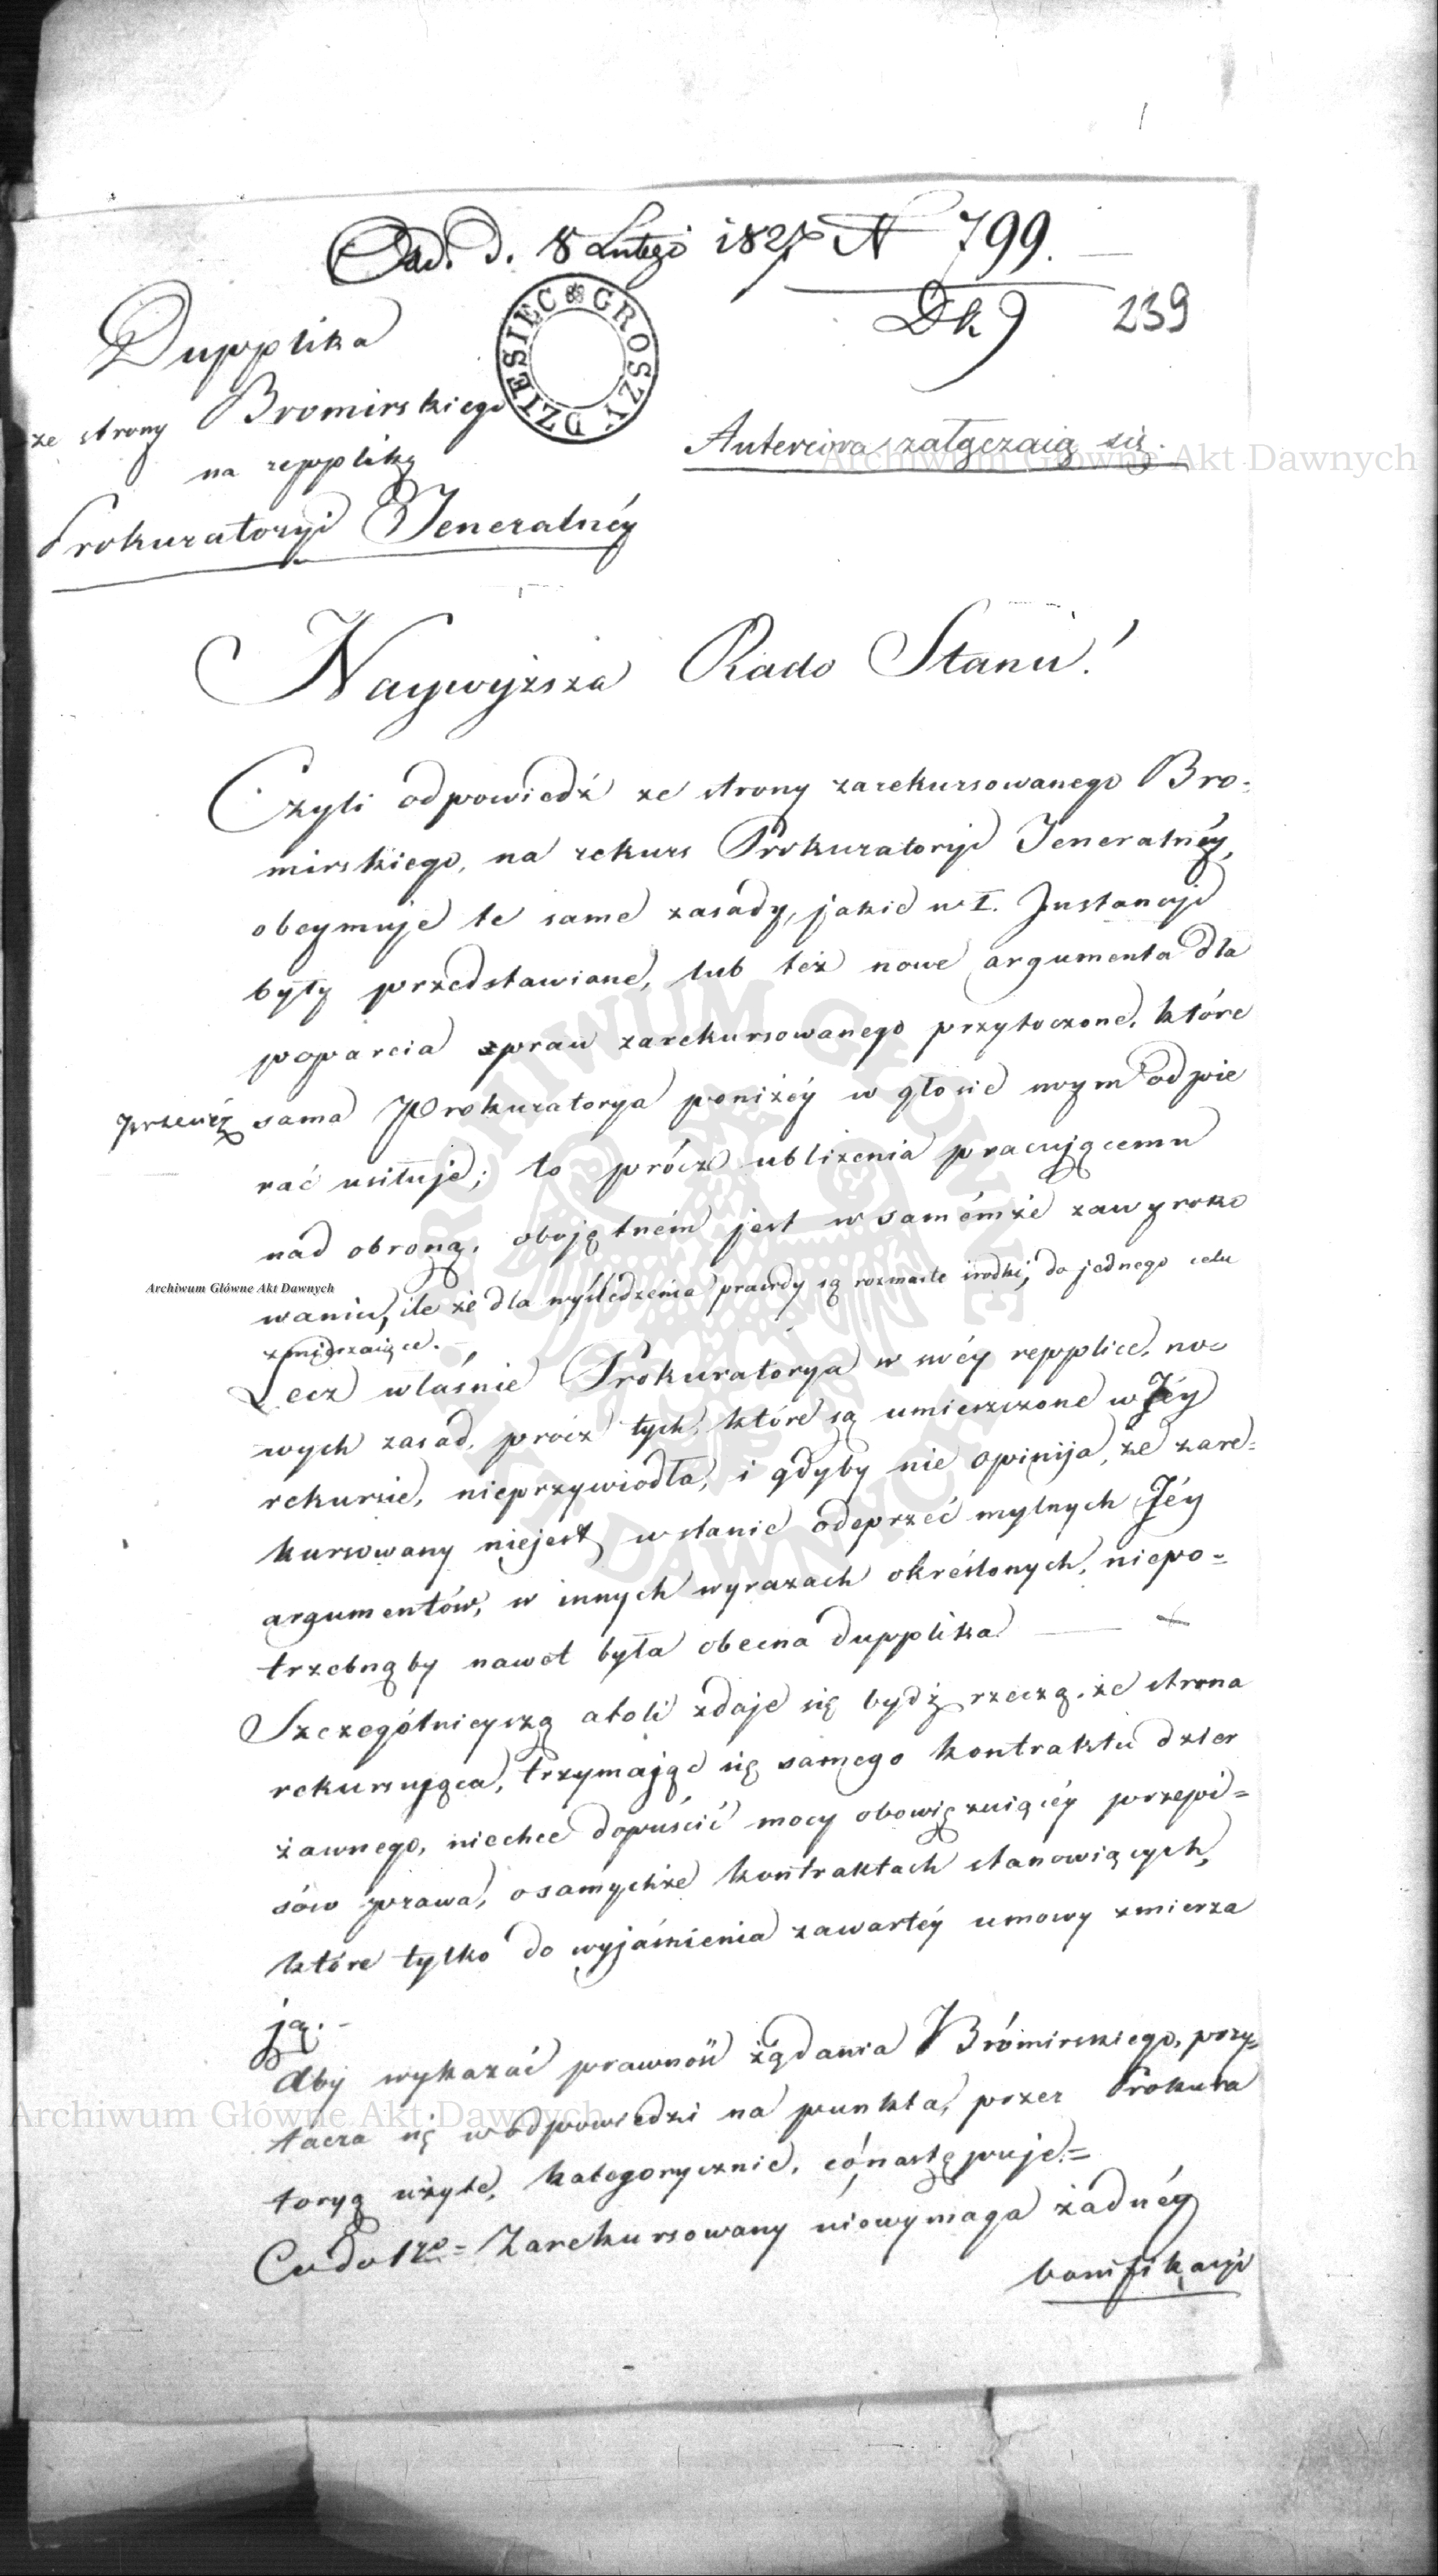 Odd. d. 8 Lutego 1827 N 799.
Dk 9
239
DZIESIĘC GROSZY
Dupplika
ze strony Bromirskiego
na repplikę
Prokuratoryi Jeneralnéy
załączaią się.
Naywyższa Rado Stanu!
Czyli odpowiedź ze strony zarekursowanego Bro-
mirskiego, na rekurs Prokuratoryi Jeneralnéy,
obeymuje te same zasady, jakie w I. Instancyi
były przedstawione, lub też nowe argumenta dla
poparcia spraw zarekursowanego przytoczone, które
sama Prokuratorya poniżéy w głosie swym odpie
rać usiłuje; to prócz ubliżenia pracującemu
nad obroną, obojętném jest w samémże zawyroko
waniu, ile że dla wyśledzenia prawdy są rozmaite środki, do jednego celu
zmierzaiące.
Lecz właśnie Prokuratorya w swéy repplice, no-
wych zasad, prócz tych, które są umieszczone w Jéy
rekursie, nieprzywiodła, i gdyby nie opinija, że zare-
kursowany niejest w stanie odeprzéć mylnych Jéy
argumentów, w innych wyrazach określonych, niepo-
trzebną by nawet była obecna dupplika
Szczególnieyszą atoli zdaje się bydź rzeczą, że strona
rekursująca, trzymając się samego kontraktu dzier
żawnego, niechce dopuścić mocy obowięzuiącéy przepi-
sów prawa, o samychże kontraktach stanowiących,
które tylko do wyjaśnienia zawartéy umowy zmierza
ją.-
Aby wykazać prawność żądania Bromirskiego, przy-
tacza się w odpowiedzi na punkta, przez Prokura
toryą użyte, kategorycznie, co następuje.=
Co do 1go = Zarekursowany niewymaga żadnéy
bonifikacyi
Archiwum Główne Akt Dawnych
Archiwum Główne Akt Dawnych
Archiwum Główne Akt Dawnych
ARCHIWUM GŁÓWNE AKT DAWNYCH